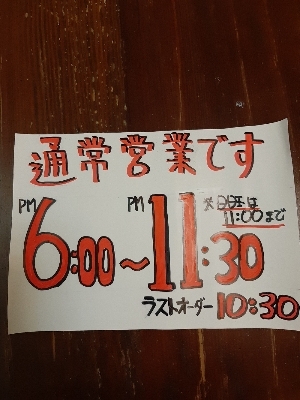 通常営業です
PM 6:00～PM 11:30
※日曜は
11:00まで
ラストオーダー 10:30